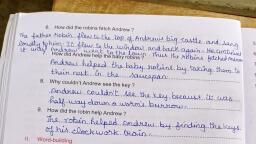 6. How did the robins fetch Andrew ?
The father Robin flew to the top of Andrew's big castle and sang
loudly to him. It flew to the window and back again. He continued
way Andrew went to the lawn. Thus the Robins fetched Andrew
7. How did Andrew help the baby robins ?
Andrew helped the baby robins by taking them to
their nest in the saucepan.
8. Why couldn't Andrew see the key ?
Andrew couldn't see the key because it was
half-way down a worm's burrow.
9. How did the robin help Andrew ?
The robin helped Andrew by finding the keys
of his clockwork train.
II. Word-building